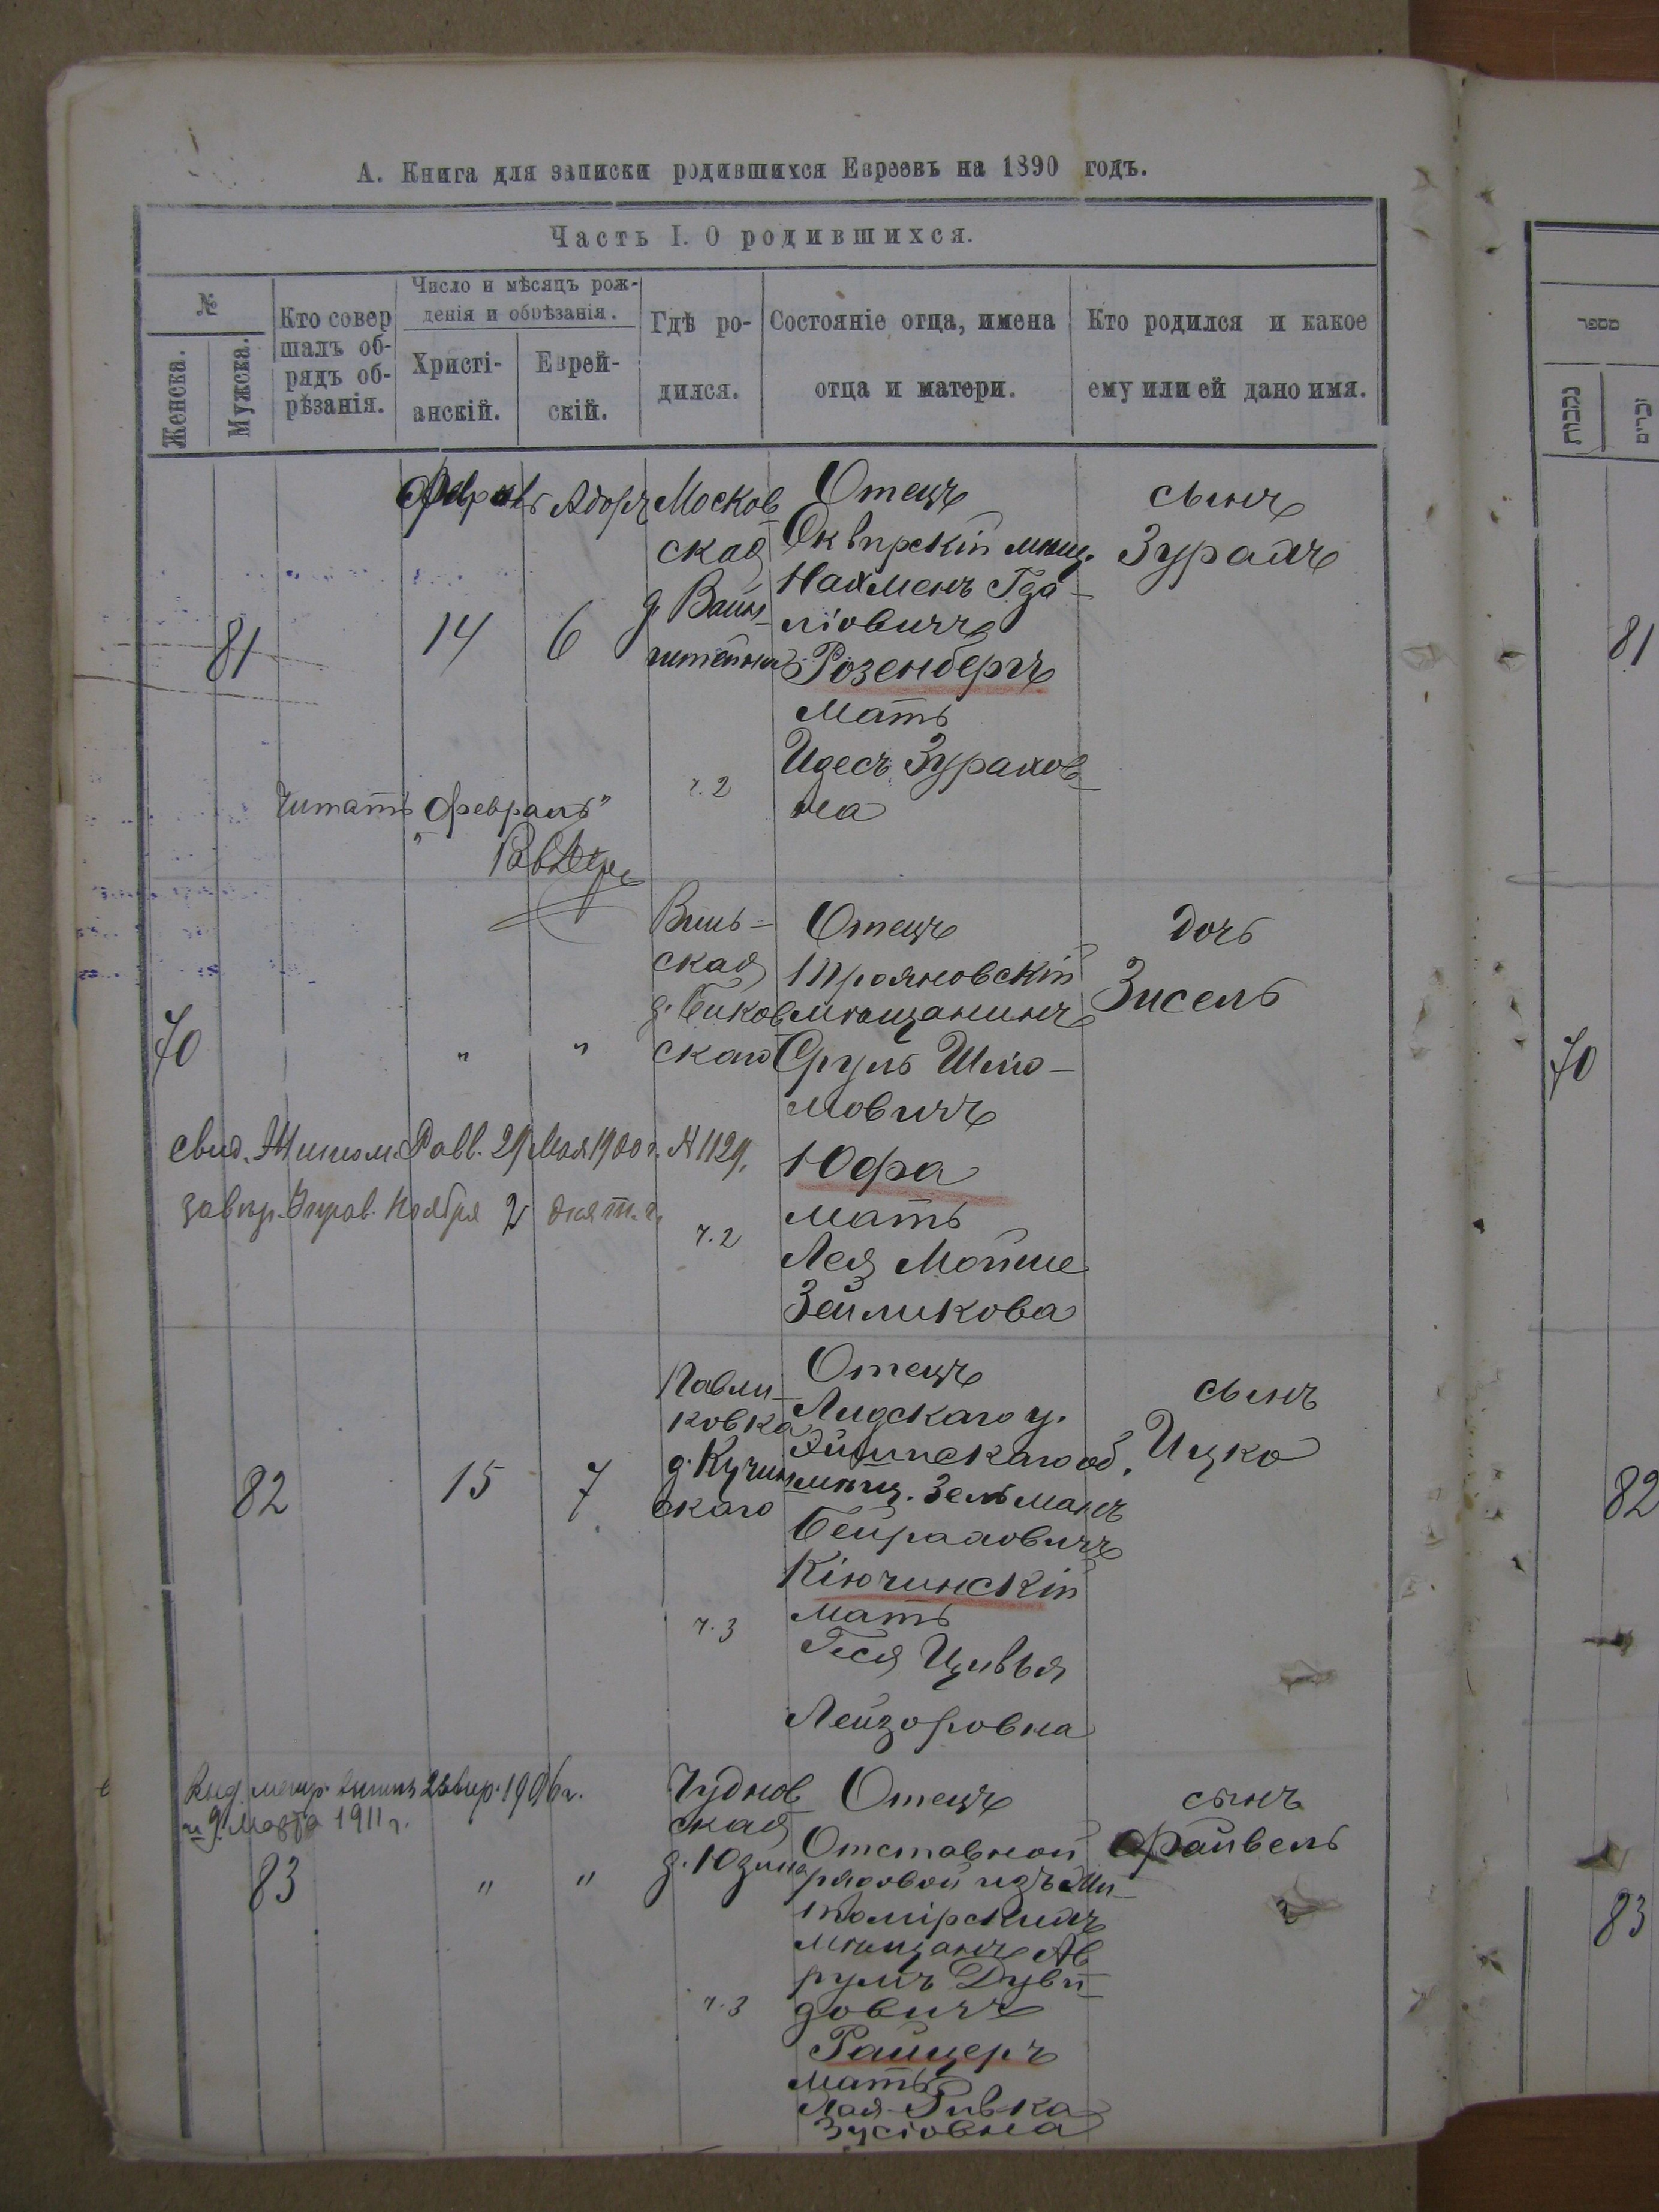 А. Книга для записки родившихся Евреевъ на 1890 годъ.
Часть I. О родившихся.
№
Женска.
Мужска.
Кто совер
шалъ об-
рядъ об-
рѣзанія.
Число и мѣсяцъ рож-
денія и обрѣзанія.
Христі-
анскій.
Еврей-
скій.
Гдѣ ро-
дился.
Состояніе отца, имена
отца и матери.
Кто родился и какое
ему или ей дано имя.
מספר
נקבות
זכרים
81
14
6
Адоръ
Москов
ская
д. Вайн-
штейна
ч. 2
Отецъ
Сквирскій мѣщ.
Нахменъ Гда-
ліовичъ
Розенбергъ
мать
Идесъ Зурахов-
на
сынъ
Зурахъ
81
Читать „Февраль"
70
"
"
Виль-
ская
д. Биков
скаго
ч. 2
Отецъ
Трояновскій
мѣщанинъ
Сруль Шлио-
мовичъ
Юфа
мать
Лея Мойше
Зейликова
дочь
Зисель
70
свид. Житом. Равв. 29 Мая 1900 г. № 1129.
Ноября 2 дня т. г.
82
15
7
Павли-
ковка
д. Кучин
скаго
ч. 3
Отецъ
Лидскаго у.
Эйшискаго об.
мѣщ. Зельманъ
Бейраховичъ
Кіючинскій
мать
Геся Цивья
Лейзоровна
сынъ
Ицко
82
1906 г.
и 9 Марта 1911 г.
83
"
"
Чуднов
ская
д. Юзина
ч. 3
Отецъ
Отставной
рядовой изъ Жи-
томірскихъ
мѣщанъ Ав
румъ Дуви-
довичъ
Райцеръ
мать
Хая-Ривка
Зусіовна
сынъ
Файвель
83